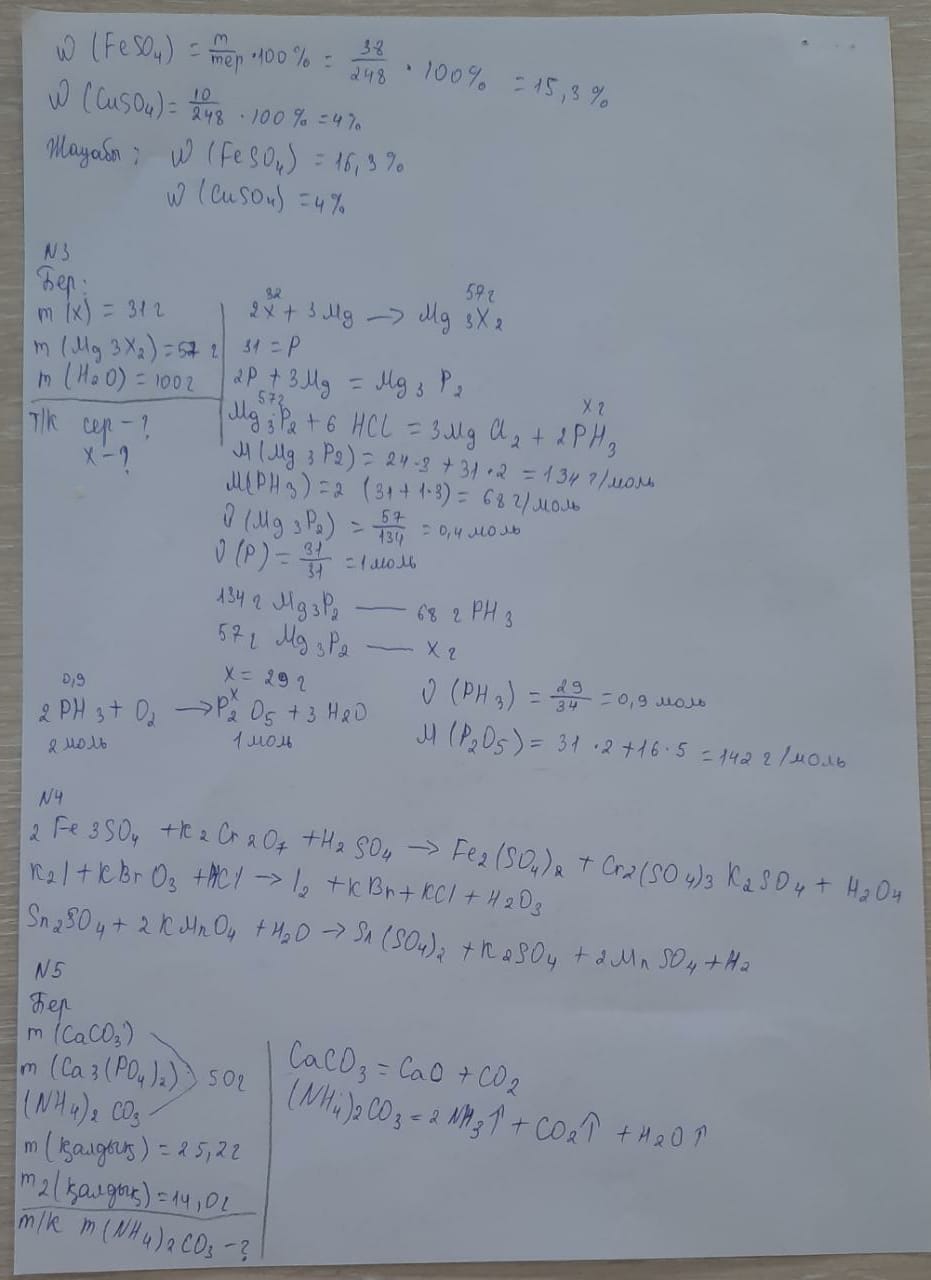 W (FeSO4) = m/mер · 100% = 38/248 · 100% = 15,3%
W (CuSO4) = 10/248 · 100% = 4%
Жауабы: W (FeSO4) = 16,3%
W (CuSO4) = 4%
N3
Бер:
m (x) = 31 г
m (Mg3X2) = 57 г
m (H2O) = 100 г
Т/К сер - ?
x - ?
32 57 г
2X + 3Mg → Mg3X2
31 = P
2P + 3Mg = Mg3P2
57 г x г
Mg3P2 + 6 HCl = 3MgCl2 + 2PH3
M(Mg3P2) = 24·3 + 31·2 = 134 г/моль
M(PH3) = 2 (31+1·3) = 68 г/моль
ν (Mg3P2) = 57/134 = 0,4 моль
ν (P) = 31/31 = 1 моль
134 г Mg3P2 — 68 г PH3
57 г Mg3P2 — x г
x = 29 г
0,9 x
2PH3 + O2 → P2O5 + 3H2O
2 моль 1 моль
ν (PH3) = 29/34 = 0,9 моль
M (P2O5) = 31·2 + 16·5 = 142 г/моль
N4
2Fe3SO4 + K2Cr2O7 + H2SO4 → Fe2(SO4)2 + Cr2(SO4)3 K2SO4 + H2O4
K2I + KBrO3 + HCl → I2 + KBr + KCl + H2O3
Sn2SO4 + 2KMnO4 + H2O → Sn(SO4)2 + K2SO4 + 2MnSO4 + H2
N5
Бер
m (CaCO3)
m (Ca3(PO4)2) 50г
(NH4)2CO3
m (қалдық) = 25,2г
m2(қалдық) = 14,0г
m/к m(NH4)2CO3 - ?
CaCO3 = CaO + CO2
(NH4)2CO3 = 2NH3↑ + CO2↑ + H2O↑